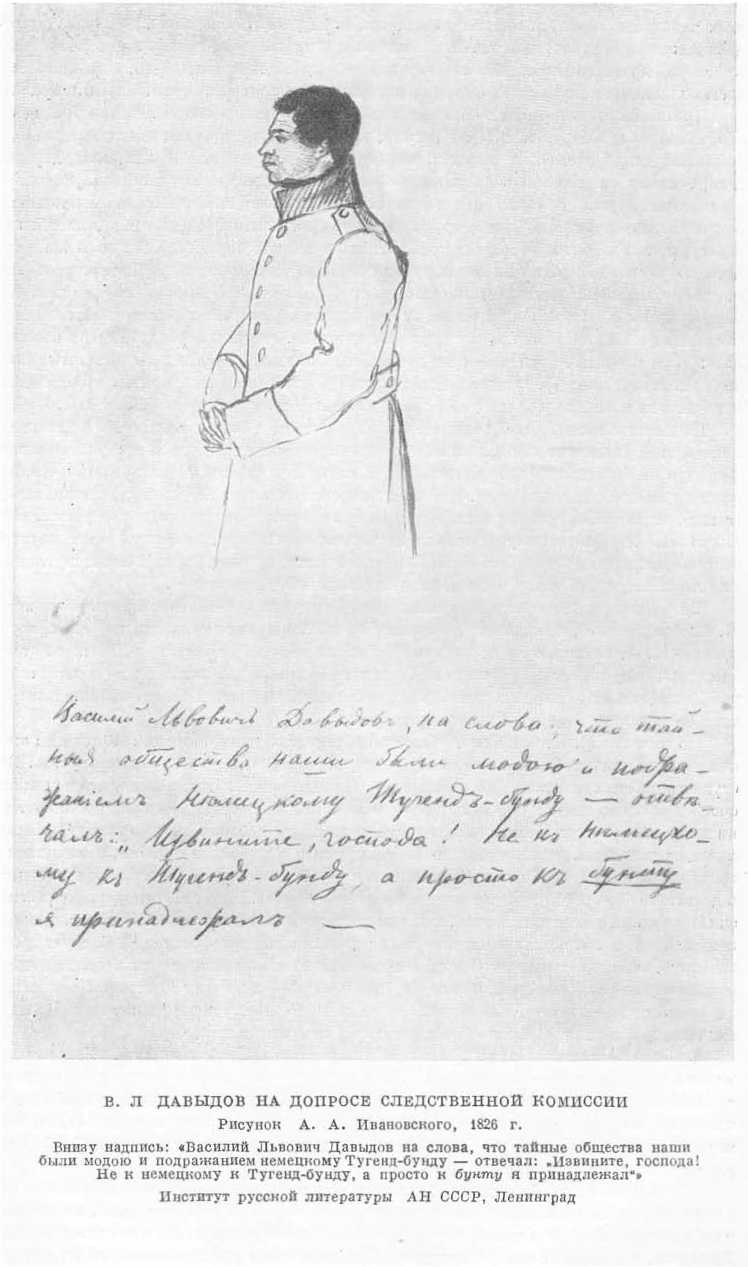 Василий Львовичъ Давыдовъ, на слова, что тай-
ныя общества наши были модою и подра-
жаніемъ нѣмецкому Тугендъ-бунду — отвѣ-
чалъ: „Извините, господа! Не къ нѣмецко-
му къ Тугендъ-бунду, а просто къ бунту
я принадлежалъ —
В. Л ДАВЫДОВ НА ДОПРОСЕ СЛЕДСТВЕННОЙ КОМИССИИ
Рисунок А. А. Ивановского, 1826 г.
Внизу надпись: «Василий Львович Давыдов на слова, что тайные общества наши
были модою и подражанием немецкому Тугенд-бунду — отвечал: „Извините, господа!
Не к немецкому к Тугенд-бунду, а просто к бунту я принадлежал“»
Институт русской литературы АН СССР, Ленинград